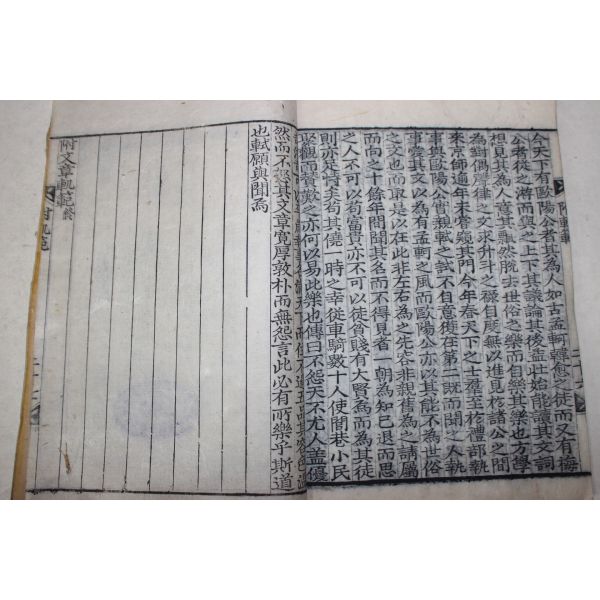 今天下有歐陽公者其為人如古孟軻韓愈之徒而又有梅
公者從之游而與之上下其議論其後益壯始能讀其文詞
想見其為人意其飄然脫去世俗之樂而自樂其樂也方學
為對偶聲律之文求升斗之祿自度無以進見於諸公之間
來京師逾年未嘗窺其門今年春天下之士羣至於禮部執
事與歐陽公實親試之誠不自意獲在第二既而聞之人執
事愛其文以為有孟軻之風而歐陽公亦以其能不為世俗
之文也而取是以在此非左右為之先容非親舊為之請屬
而向之十餘年間聞其名而不得見者一朝為知己退而思
之人不可以苟富貴亦不可以徒貧賤有大賢焉而為其徒
則亦足恃矣苟其僥一時之幸從車騎數十人使閭巷小民
聚觀而贊歎之亦何以易此樂也傳曰不怨天不尤人盖優
天下而位不過五品其容色溫
然而不怒其文章寬厚敦朴而無怨言此必有所樂乎斯道
也軾願與聞焉
附文章軌範終